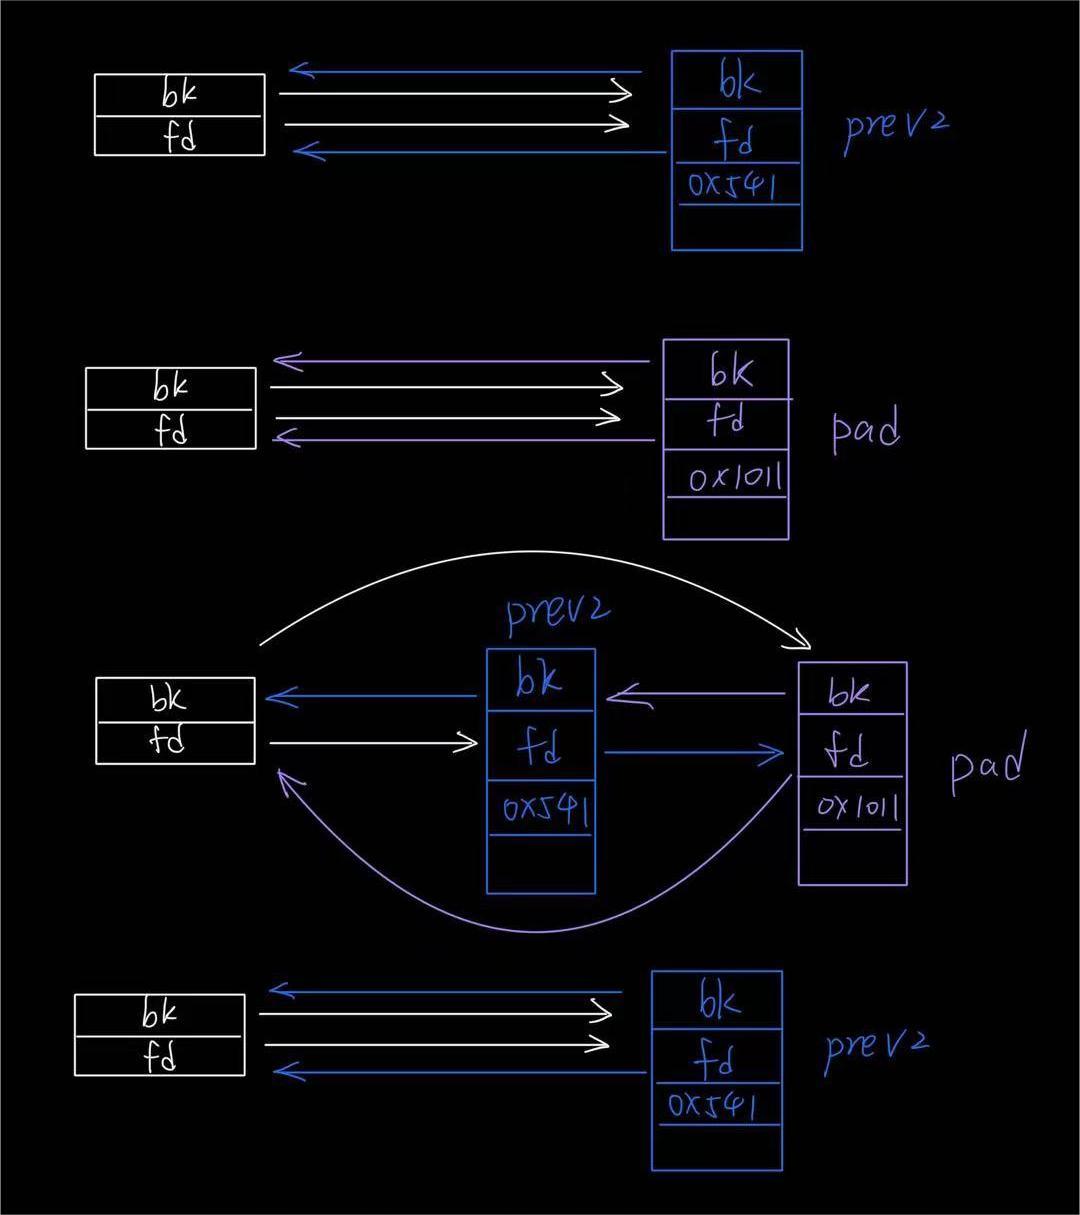 bk
fd
bk
fd
0x541
prev2
bk
fd
bk
fd
0x1011
pad
prev2
bk
fd
bk
fd
0x541
bk
fd
0x1011
pad
bk
fd
bk
fd
0x541
prev2